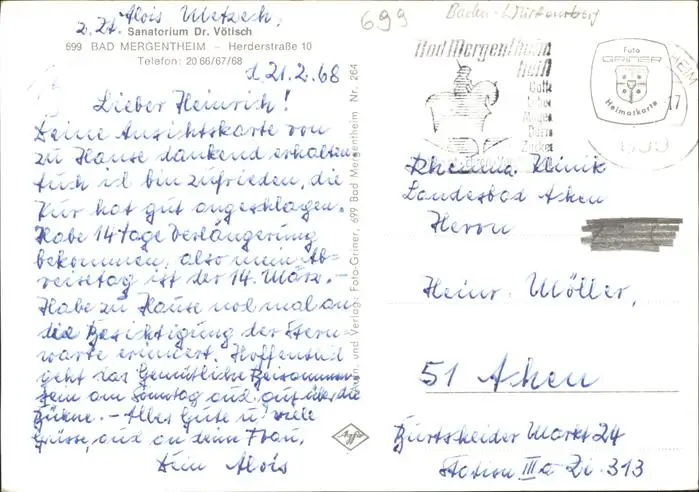 Alois Metzech,
z. Zt. Sanatorium Dr. Vötisch
699 BAD MERGENTHEIM – Herderstraße 10
Telefon: 20 66/67/68
d. 21.2.68
Lieber Heinrich!
Deine Ansichtskarte von
zu Hause dankend erhalten
Auch ich bin zufrieden, die
Kur hat gut angeschlagen.
Habe 14 Tage Verlängerung
bekommen, also mein Ab-
reisetag ist der 14. März. –
Habe zu Hause noch mal an
die Besichtigung der Stern-
warte erinnert. Hoffentlich
geht das Gemütliche Beisammen
sein am Sonntag auch gut über die
Bühne. – Alles Gute u. viele
Grüsse, auch an deine Frau,
Dein Alois
Anm. und Verlag: Foto-Griner, 699 Bad Mergentheim Nr. 264
Agfa
699
Baden-Würtemberg
Bad Mergentheim
heilt
Galle
Leber
Magen
Darm
Zucker
Foto
GRINER
Heimatkarte
17
699
Rheuma Klinik
Landesbad Achen
Herrn
Heinr. Möller,
51 Achen
Burtscheider Markt 24
Station III a Zi. 313